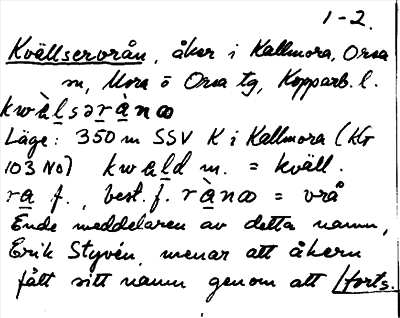 1-2.
Kvällservrån, åker i Kallmora, Orsa
sn, Mora o Orsa tg, Kopparb. l.
kwàḻsərà̱nω
Läge: 350 m SSV K i Kallmora (Kr
103 No) kwaḻd m. = kväll.
ra̱ f., best. f. rà̱nω = vrå
Ende meddelaren av detta namn,
Erik Styvén, menar att åkern
fått sitt namn genom att /forts.